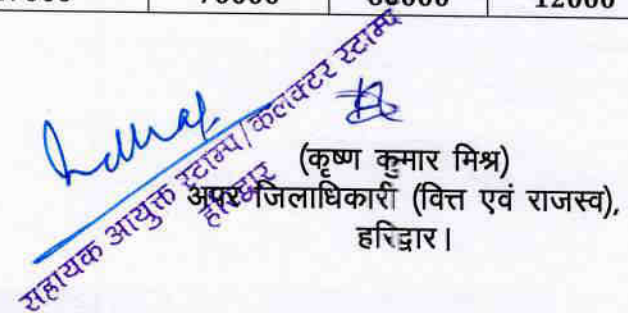 70000 12000
सहायक आयुक्त स्टाम्प/कलक्टर स्टाम्प
हरिद्वार
(कृष्ण कुमार मिश्र)
अपर जिलाधिकारी (वित्त एवं राजस्व),
हरिद्वार।